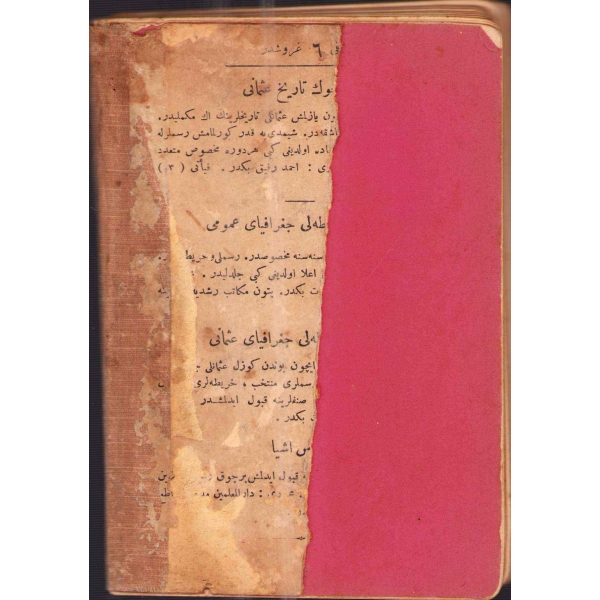 فی ٦ غروشدر
بوك تاریخ عثمانی
ون یازلمش عثمانلی تاریخلرینك اك مكملیدر.
اشقهدر. شیمدی یه قدر كورلمامش رسملرله
اد. اولدیغی كبی هردوره مخصوص متعدد
ی : احمد رفیق بكدر. فیأتی ( ٣ )
یطه‌لی جغرافیای عمومی
سنه سنه مخصوصدر. رسملی و خریطه
اعلا اولدیغی كبی جلدلیدر.
ت بكدر. بتون مكاتب رشدیه
طه‌لی جغرافیای عثمانی
ایچون بوندن كوزل عثمانلی
سملری منتخب ، خریطه‌لری
صنفلرینه قبول ایدلمشدر
بكدر.
س اشیا
قبول ایدلمش برچوق
: دارالمعلمین